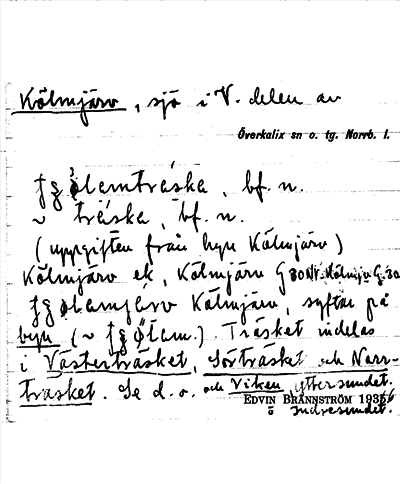 Kölmjärv, sjö i V. delen av
Överkalix sn o. tg. Norrb. l.
tʒölamträska, bf. n.
~ träska, bf. n.
(uppgiften från byn Kölmjärv)
Kölmjärv ek, Kölmjärv G 30 NV. Kölmjv G. 30
tʒölamjärv Kölmjärv, syftar på
byn (~ tʒölam.). Träsket indelas
i Västerträsket, Sörträsket och Norr-
träsket. Se d. o. och Viken, yttersundet.
EDVIN BRÄNNSTRÖM 1935
o indresundet.